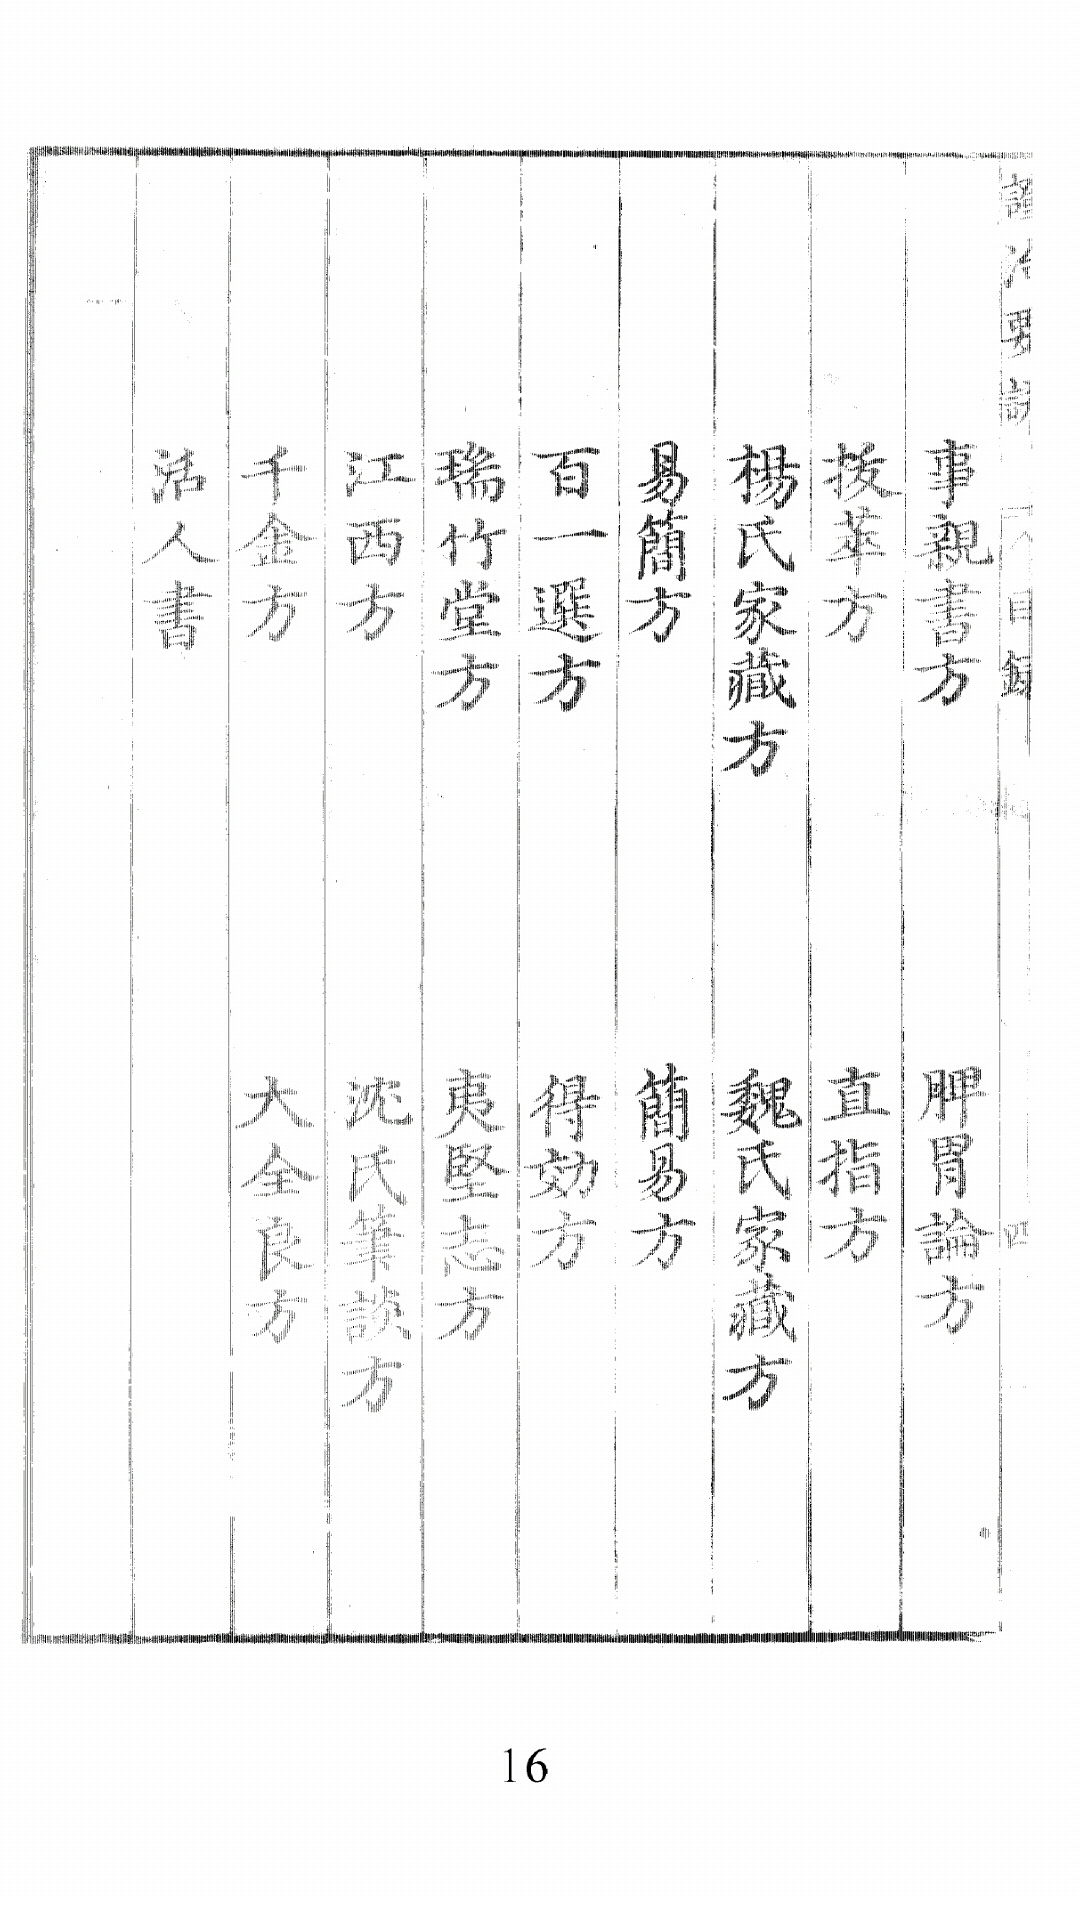 治要訣 目錄 四
事親書方 脾胃論方
拔萃方 直指方
楊氏家藏方 魏氏家藏方
易簡方 簡易方
百一選方 得効方
瑞竹堂方 夷堅志方
江西方 沈氏筆談方
千金方 大全良方
活人書
16